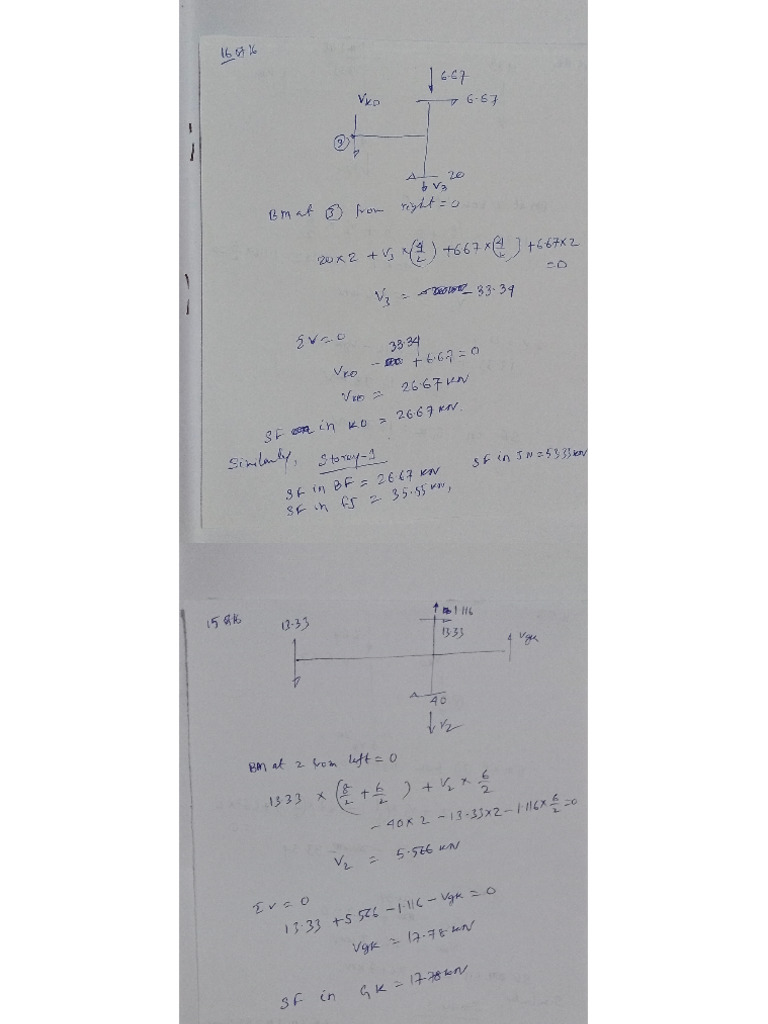 16 of 16
6.67
VKO
6.67
3
20
V3
BM at ③ from right = 0
20 × 2 + V3 × (4/2) + 6.67 × (4/2) + 6.67 × 2
= 0
V3 = - 33.34
ΣV = 0
VKO - 33.34 + 6.67 = 0
VKO = 26.67 KN
SF in KO = 26.67 KN.
Similarly, Storey-1
SF in BF = 26.67 KN
SF in JN = 53.33 KN
SF in FJ = 35.55 KN,
15 of 16
13.33
1.116
13.33
VGK
40
V2
BM at 2 from left = 0
13.33 × (8/2 + 6/2) + V2 × 6/2
- 40 × 2 - 13.33 × 2 - 1.116 × 6/2 = 0
V2 = 5.566 KN
ΣV = 0
13.33 + 5.566 - 1.116 - VGK = 0
VGK = 17.78 KN
SF in GK = 17.78 KN